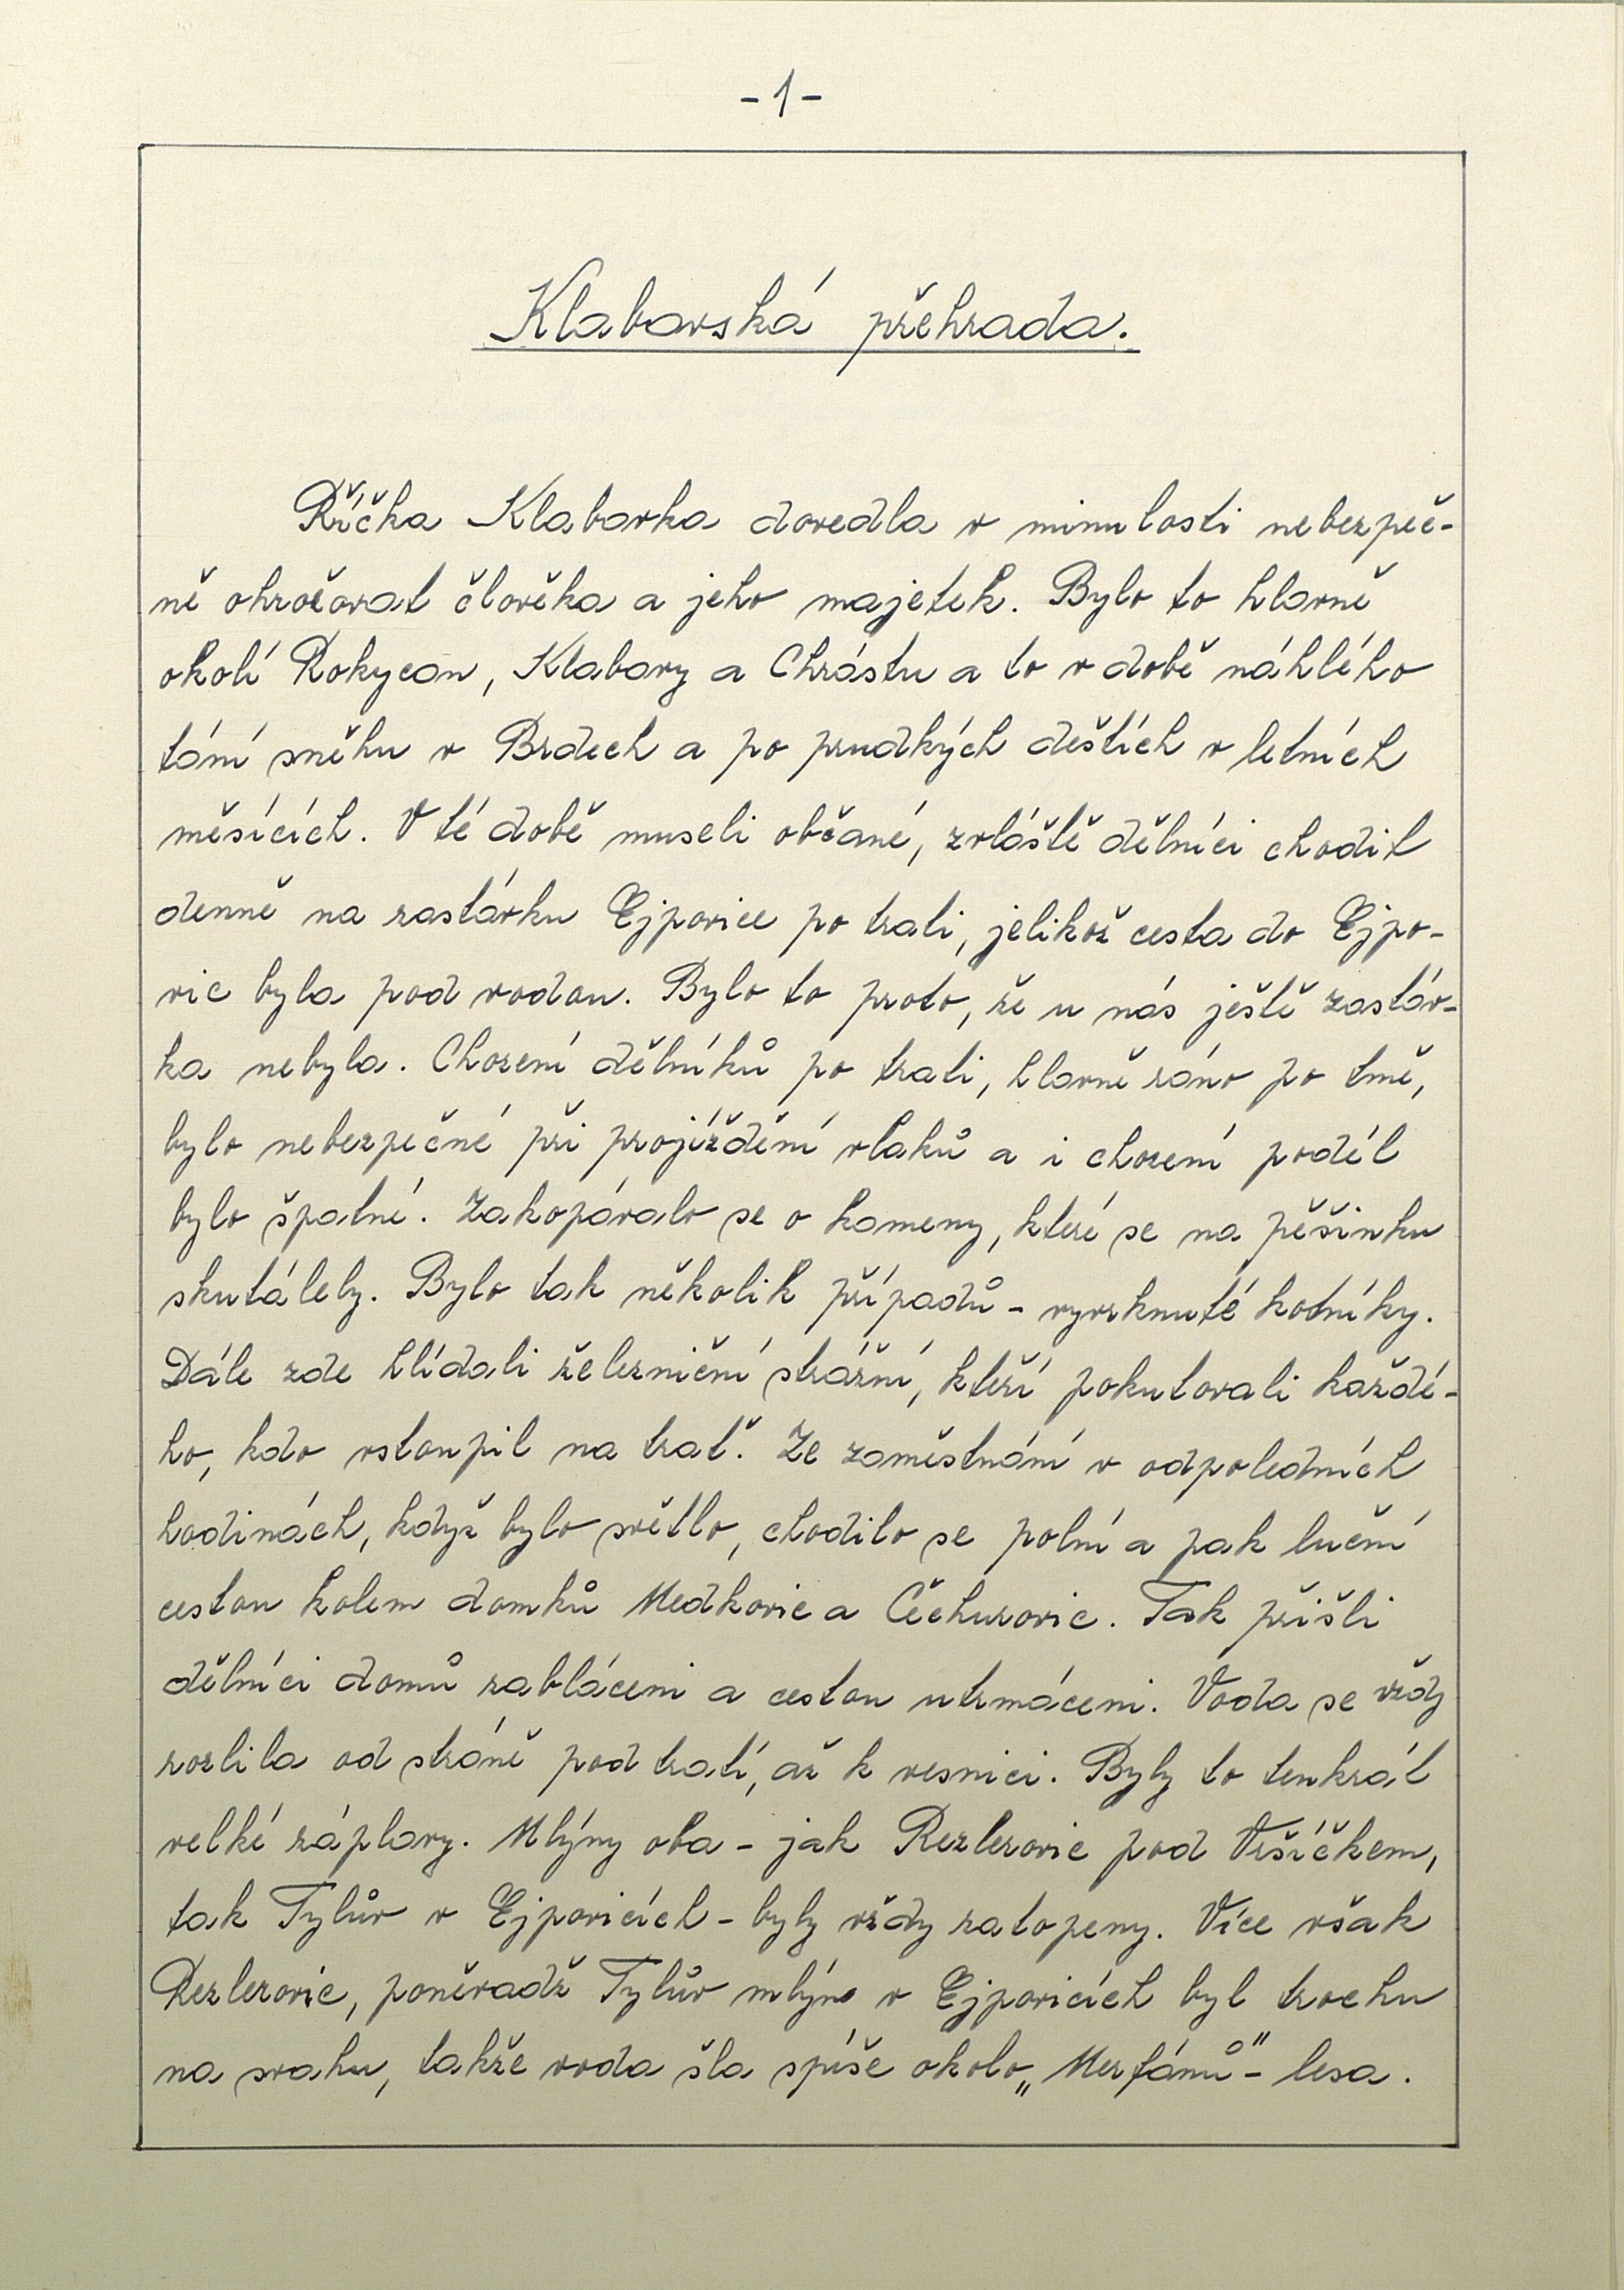 - 1 -
Klabavská přehrada.
Říčka Klabavka dovedla v minulosti nebezpeč-
ně ohrožovat člověka a jeho majetek. Bylo to hlavně
okolí Rokycan, Klabavy a Chrástu a to v době náhlého
tání sněhu v Brdech a po prudkých deštích v letních
měsících. V té době museli občané, zvláště dělníci chodit
denně na zastávku Ejpovice po trati, jelikož cesta do Ejpo-
vic byla pod vodou. Bylo to proto, že u nás ještě zastáv-
ka nebyla. Chození dělníků po trati, hlavně ráno po tmě,
bylo nebezpečné při projíždění vlaků a i chození podél
bylo špatné. Zakopávalo se o kameny, které se na pěšinku
skutálely. Bylo tak několik případů - vyvrknuté kotníky.
Dále zde hlídali železniční strážní, kteří pokutovali každé-
ho, kdo vstoupil na trať. Ze zaměstnání v odpoledních
hodinách, když bylo světlo, chodilo se polní a pak luční
cestou kolem domků Medkovic a Čechurovic. Tak přišli
dělníci domů zabláceni a cestou utrmáceni. Voda se vždy
rozlila od stráně pod tratí, až k vesnici. Byly to tenkrát
velké záplavy. Mlýny oba - jak Rezlerovic pod Vršíčkem,
tak Tylův v Ejpovicích - byly vždy zatopeny. Více však
Rezlerovic, poněvadž Tylův mlýn v Ejpovicích byl trochu
na svahu, takže voda šla spíše okolo „Merfánů" - lesa.